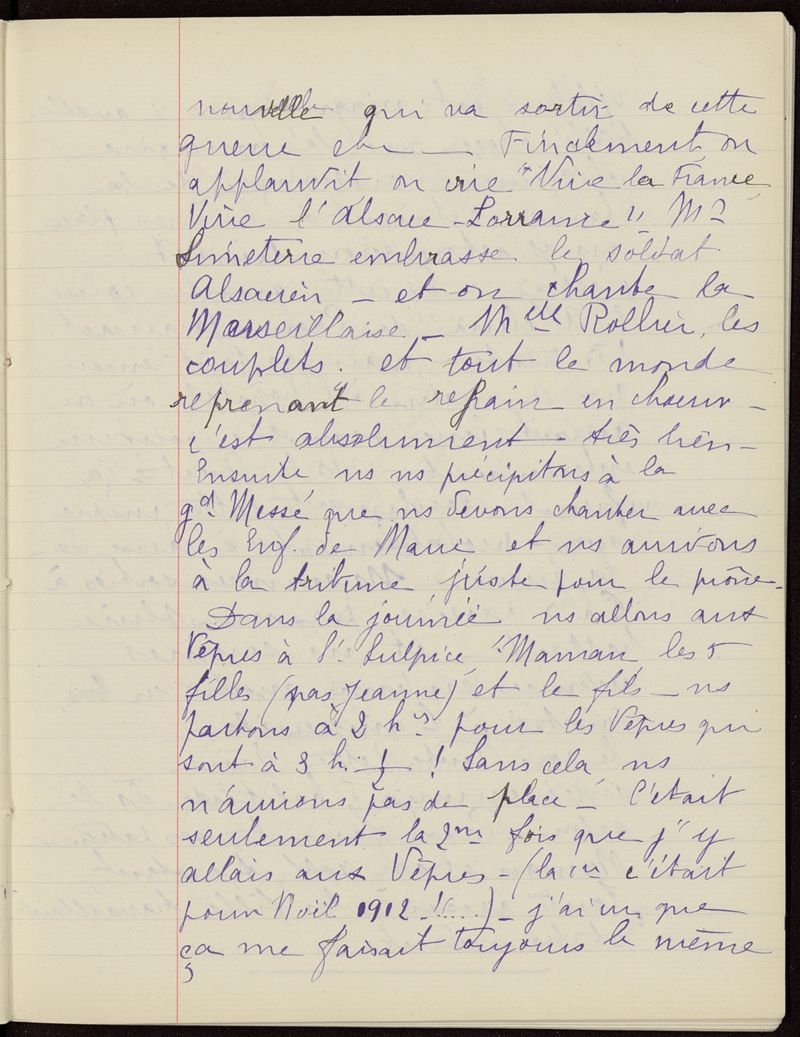 nouvelle qui va sortir de cette
guerre etc — Finalement on
applaudit on crie "Vive la France
Vive l'Alsace-Lorraine !! Mr
Simeterre embrasse le soldat
Alsacien — et on chante la
Marseillaise — Melle Rollier, les
couplets. et tout le monde
reprenant le refrain en choeur —
c'est absolument très bien —
Ensuite ns ns précipitons à la
gd. Messe que ns devons chanter avec
les Enf. de Marie et ns arrivons
à la tribune juste pour le prône.
Dans la journée ns allons aux
Vêpres à St. Sulpice, Maman, les 5
filles (pas Jeanne) et le fils — ns
partons à 2 hres pour les Vêpres qui
sont à 3 h. ½ ! Sans cela ns
n'aurions pas de place — C'était
seulement la 2me fois que j'y
allais aux Vêpres — (la 1re c'était
pour Noël 1912 !....) — j'ai vu que
ça me faisait toujours le même